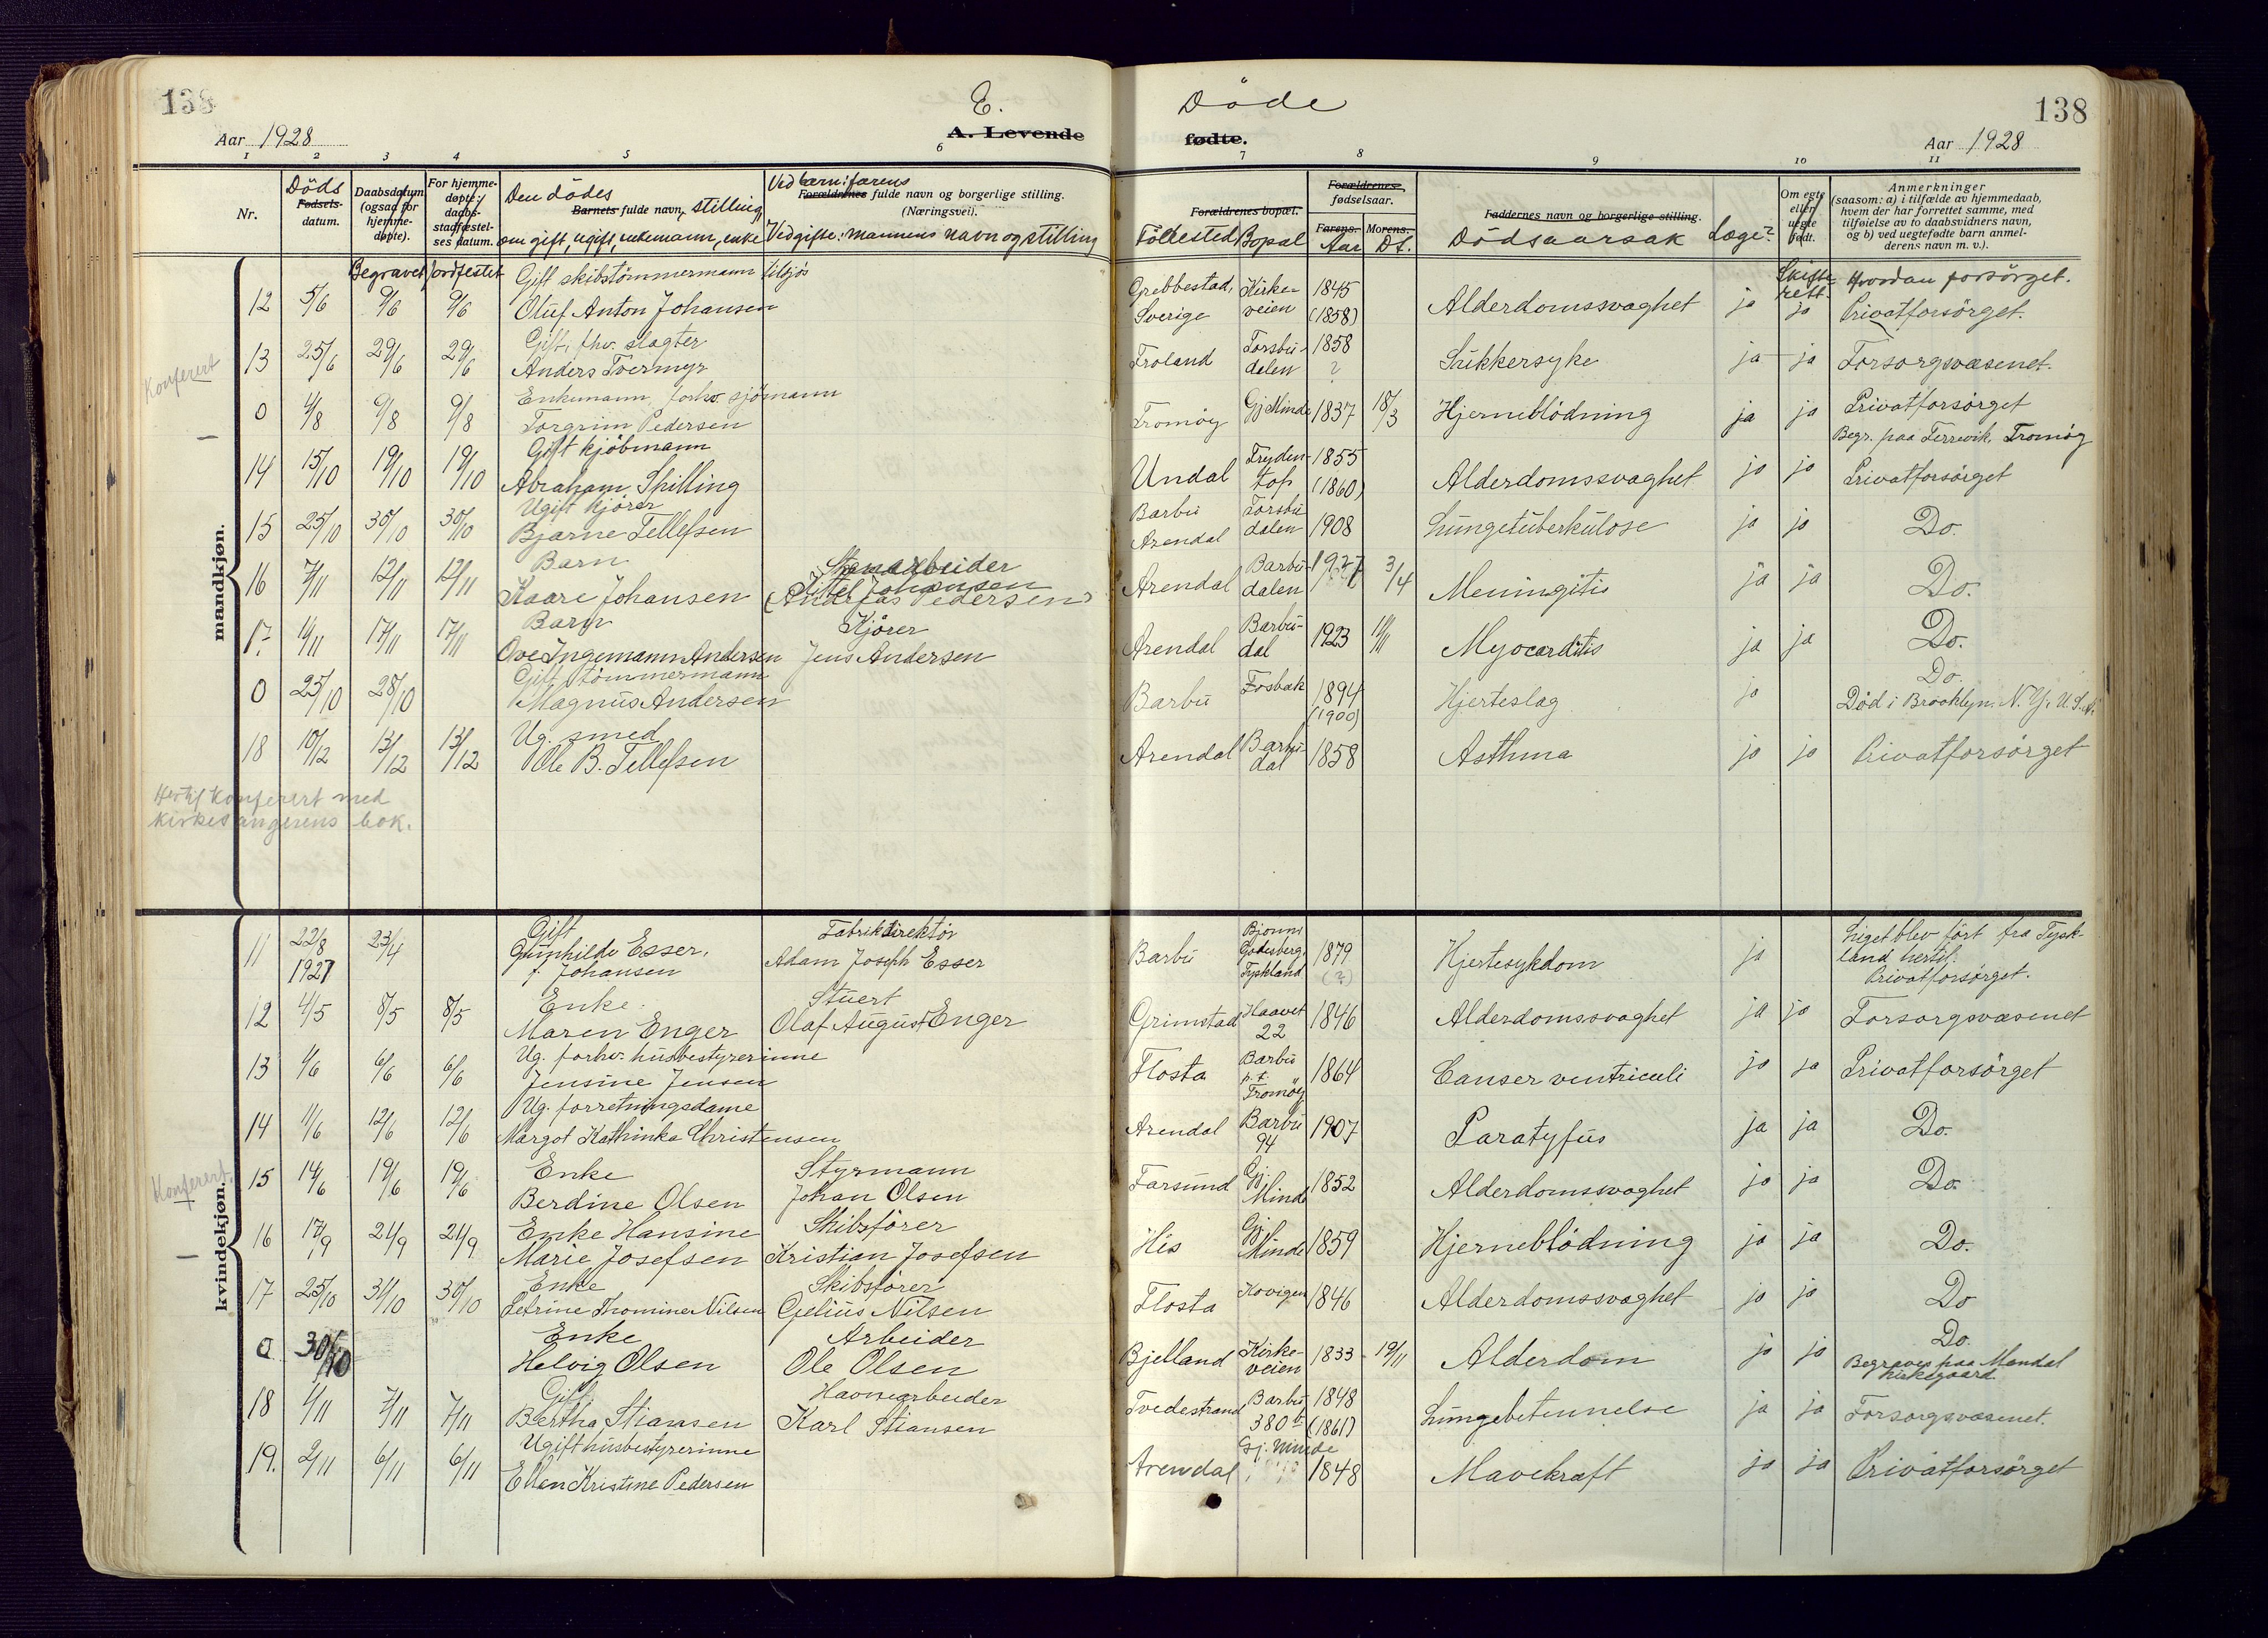 138
E.
Døde
138
Aar 1928
A. Levende
fødte.
Aar 1928
1 2 3 4 5 6 7 8 9 10 11
Nr.
Døds
Fødsels-
datum.
Daabsdatum
(ogsaa for
hjemme-
døpte).
For hjemme-
døpte:
daabs-
stadfæstel-
ses datum.
Den dödes
Barnets fulde navn, stilling,
om gift, ugift, enkemann, enke
Ved barn: farens
Forældrenes fulde navn og borgerlige stilling.
(Næringsvei).
Ved gifte: mannens navn og stilling
Forældrenes bopæl.
Födested Bopæl
Forældrenes
fødselsaar.
Farens. Morens.
Aar Dt.
Faddernes navn og borgerlige stilling.
Dödsaarsak Læge?
Om egte
eller
uegte
født.
Anmerkninger
(saasom: a) i tilfælde av hjemmedaab,
hvem der har forrettet samme, med
tilføielse av to daabsvidners navn,
og b) ved uegtefødte barn anmel-
derens navn m. v.).
Begravet Jordfestet
Skifte-
rett.
Hvordan forsörget.
mandkjøn.
Gift skibstömmermann tilsjøs
12 5/6 9/6 9/6 Oluf Anton Johansen Grebbestad, Sverige Kirke-veien 1845 (1858) Alderdomssvaghet ja jo Privatforsörget.
Konferert
Gift, fhv. slagter
13 25/6 29/6 29/6 Anders Tvermyr Froland Torsbu-dalen 1858 ? Sukkersyke ja ja Forsorgsvæsenet.
Enkemann, forhv. sjömann
0 4/8 9/8 9/8 Torgrim Pedersen Tromöy Gj Minde 1837 18/3 Hjerneblödning ja ja Privatforsörget
Begr. paa Færvik, Tromöy
Gift kjöbmann
14 15/10 19/10 19/10 Abraham Spilling Undal Fryden-top 1855 (1860) Alderdomssvaghet jo jo Privatforsörget
Ugift kjörer
15 25/10 30/10 30/10 Bjarne Tellefsen Barbu Arendal Torsbudalen 1908 Lungetuberkulose ja jo Do.
Barn Stenarbeider
16 7/11 12/11 12/11 Kaare Johansen (Andreas Pedersen) Johansen Arendal Barbu-dalen 1927 3/4 Meningitis ja ja Do.
Barn Kjörer
17. 14/11 17/11 17/11 Ove Ingemann Andersen Jens Andersen Arendal Barbu-dal 1923 Myocarditis ja ja Do.
Gift tömmermann
0 25/10 28/10 Magnus Andersen Barbu Fosbæk 1894 (1900) Hjerteslag jo Do.
Död i Brooklyn. N.Y. U.S.A.
Ug. smed
18 10/12 13/12 13/12 Ole B. Tellefsen Arendal Barbu-dal 1858 Asthma jo jo Privatforsörget
Hertil konferert med
kirkesangerens bok.
kvindekjøn.
Gift Fabrikdirektör
11 22/8 1927 23/4 Gunhilde Esser, f. Johansen Adam Joseph Esser Barbu Godesberg, Tyskland 1879 (?) Hjertesykdom ja Liget blev fört fra Tysk-
land hertil.
Privatforsörget.
Enke. Stuert
12 4/5 8/5 8/5 Maren Enger Olaf August Enger Grimstad Haavet 22 1846 Alderdomssvaghet ja jo Forsorgsvæsenet
Ug. forhv. husbestyrerinne
13 1/6 6/6 6/6 Jensine Jensen Flosta Barbu p.t. Tromöy 1864 Canser ventriculi jo ja Privatforsörget
Ug. forretningsdame
14 11/6 12/6 12/6 Margot Kathinka Christensen Arendal Barbu 94 1907 Paratyfus ja ja Do.
Konferert
Enke Styrmann
15 14/6 19/6 19/6 Berdine Olsen Johan Olsen Farsund Gj. Minde 1852 Alderdomssvaghet jo ja Do.
Enke Hansine Skibsförer
16 17/9 21/9 21/9 Marie Josefsen Kristian Josefsen His Gj Minde 1859 Hjerneblödning jo ja Do.
Enke Skibsförer
17 25/10 31/10 30/10 Petrine Thomine Nilsen Gjelius Nilsen Flosta Kovigen 1846 Alderdomssvaghet jo jo Do
Enke Arbeider
0 30/10 Helvig Olsen Ole Olsen Bjelland Kirke-veien 1833 19/11 Alderdom jo jo Do.
Begraves paa Mandal
kirkegaard
Gift Havnearbeider
18 1/11 7/11 7/11 Bertha Stiansen Karl Stiansen Tvedestrand Barbu 380 b 1848 (1861) Lungebetennelse ja ja Forsorgsvæsenet.
Ugift husbestyrerinne
19. 2/11 6/11 6/11 Ellen Kristine Pedersen Arendal Gj. Minde 1848 Mavekræft jo ja Privatforsörget